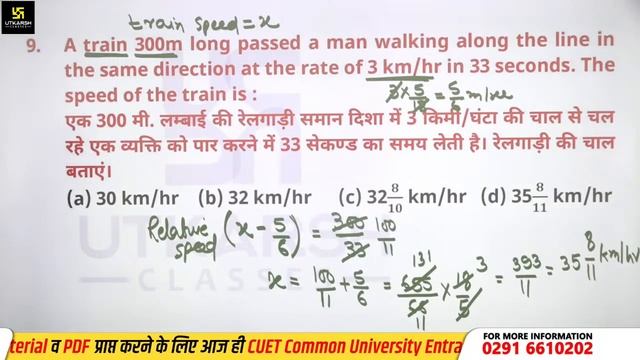 UTKARSH
CLASSES
train speed = x
9. A train 300m long passed a man walking along the line in
the same direction at the rate of 3 km/hr in 33 seconds. The
speed of the train is :
3 × 5/18 = 5/6 m/sec
एक 300 मी. लम्बाई की रेलगाड़ी समान दिशा में 3 किमी/घंटा की चाल से चल
रहे एक व्यक्ति को पार करने में 33 सेकण्ड का समय लेती है। रेलगाड़ी की चाल
बताएं।
(a) 30 km/hr (b) 32 km/hr (c) 32 8/10 km/hr (d) 35 8/11 km/hr
Relative speed (x - 5/6) = 300/33 100/11
x = 100/11 + 5/6 = 655/66 × 18/5 = 393/11 = 35 8/11 km/hr
131 3
11
UTKARSH
CLASSES
terial व PDF प्राप्त करने के लिए आज ही CUET Common University Entra
FOR MORE INFORMATION
0291 6610202